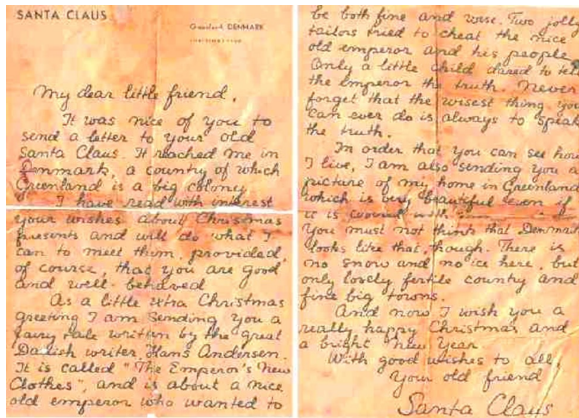 SANTA CLAUS
Greenland, DENMARK
My dear little friend,
It was nice of you to
send a letter to your old
Santa Claus. It reached me in
Denmark, a country of which
Greenland is a big colony
I have read with interest
your wishes about Christmas
presents and will do what I
can to meet them, provided,
of course, that you are good
and well-behaved
As a little xtra Christmas
greeting I am sending you a
fairy tale written by the great
Danish writer, Hans Andersen.
It is called "The Emperor's New
Clothes", and is about a nice
old emperor who wanted to
be both fine and wise. Two jolly
tailors tried to cheat the nice
old emperor and his people
Only a little child dared to tell
the emperor the truth. Never
forget that the wisest thing you
can ever do is always to speak
the truth.
In order that you can see how
I live, I am also sending you a
picture of my home in Greenland
which is very beautiful even if
it is covered with
You must not think that Denmark
looks like that, though. There is
no snow and no ice here, but
only lovely, fertile country and
fine big towns.
And now I wish you a
really happy Christmas and
a bright New Year
With good wishes to all,
Your old friend
Santa Claus